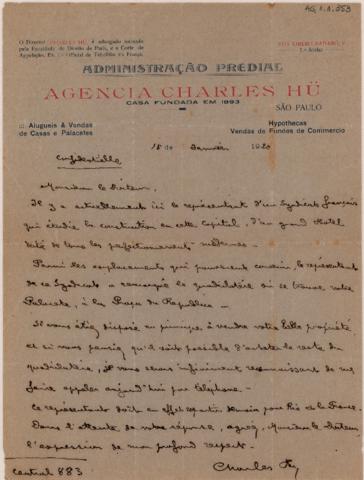 AG.1.1.253
O Director CHARLES HÜ é advogado formado
pela Faculdade de Direito de Paris, e a Corte de
Appellação, Ex-
de Tabellião da França.
RUA LIBERO BADARÓ,
1.º Andar
ADMINISTRAÇÃO PREDIAL
AGENCIA CHARLES HÜ
CASA FUNDADA EM 1893
SÃO PAULO
Alugueis & Vendas
de Casas e Palacetes
Hypothecas
Vendas de Fundos de Commercio
15 de Janvier 1920
Confidentielle
Monsieur le Docteur,
Il y a actuellement ici le représentant d'un Syndicat français
qui étudie la construction en cette Capital, d'un grand Hotel
doté de tous les perfectionnements modernes.-
Parmi les emplacements qui pourraient convenir, le représentant
de ce Syndicat a remarqué le quadrilatère où se trouve votre
Palacete, à la Praça da Republica -
Si vous étiez disposé en principe, à vendre votre belle propriété
et si vous pensiez qu'il soit possible d'acheter le reste du
quadrilatère, je vous serais infiniment reconnaissant de me
faire appeler aujourd'hui par téléphone.-
Ce représentant doit en effet repartir demain pour Rio et la France.
Dans l'attente de votre réponse, agréez, Monsieur le Docteur
l'expression de mon profond respect.-
Charles Hü
Central 883